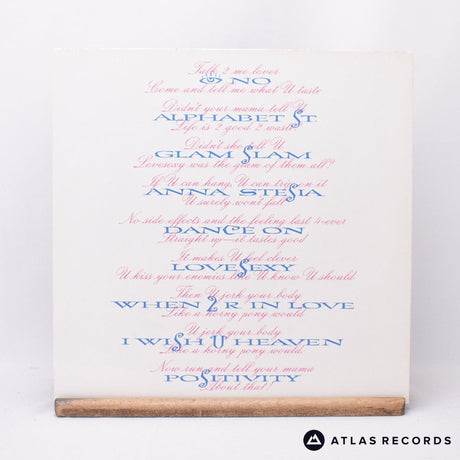 Talk 2 me lover
& NO
Come and tell me what U taste
Didn't your mama tell U
ALPHABET ST
Life is 2 good 2 waste
Didn't she tell U
GLAM SLAM
Lovesexy was the glam of them all?
If U can hang, U can trip on it
ANNA STESIA
U surely won't fall
No side effects and the feeling last 4-ever
DANCE ON
Straight up—it tastes good
It makes U feel clever
LOVESEXY
U kiss your enemies like U know U should
Then U jerk your body
WHEN 2 R IN LOVE
Like a horny pony would
U jerk your body
I WISH U HEAVEN
Like a horny pony would
Now run and tell your mama
POSITIVITY
About that!
ATLAS RECORDS